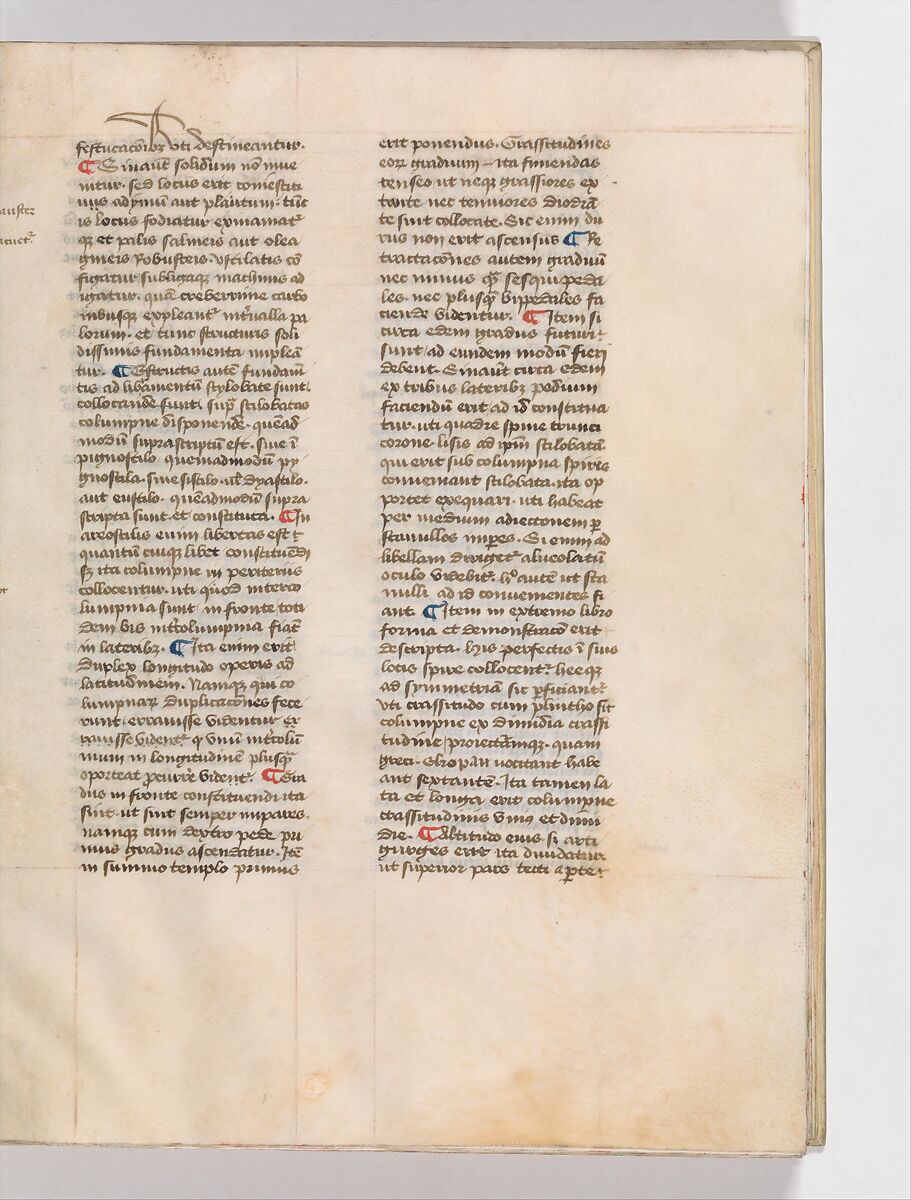 festucacōībꝫ vti destineantur.
¶ Sinaūt solidum nō inue
nitur. sed locus erit comesti
uus ad ymū aut plāutum. tūc
is locus fodiatur exinaniatᵉ
qꝫ et palis salineis aut olea
gineis Robusteis. vstilatis cō
figatur. subligaqꝫ machinis ad
igatur. quā creberrime carbo
inbusqꝫ expleantᵉ int̄ualla pa
lorum. et tunc structuris soli
dissimis fundamenta impleā
tur. ¶ Exstructis autē fundamē
tis ad libramentū stylobate sunt
collocande sunt. supᵃ stilobatas
columpne disponende. quēad
modū suprascriptū est. siue ī
pignostilo quemadmodū py
gnostila. siue sistilo. uel dyastilo.
aut eustilo. quēadmodū supra
scripta sunt. et constituta. ¶ In
areostilis enim libertas est ꝛ
quantū cuiqꝫ libet constituēdi
sꝫ ita columpne in periteriis
collocentur. uti quod interco
lumpnia sunt in fronte toti
dem bis int̄columpnia fiāt
in lateribꝫ. ¶ Ita enim erit
duplex longitudo operis ad
latitudinem. Namqꝫ qui co
lumpnarꝫ duplicacōnes fece
runt. errauisse videntur er
rauisse videntᵉ qꝫ vnū int̄colū
nium in longitudinē plusqᵃ
oporteat ꝓcurre vident. ¶ Gra
dus in fronte constituendi ita
sunt. ut sint semper impares.
namqꝫ cum dextro pede pri
mus gradus ascendatur. Itē
in summo templo primus
erit ponendus. Grassitudines
eorꝫ graduum ita finiendas
censeo ut neqꝫ grassiores ex
tante nec tenuiores diodrā
te sint collocate. Sic enim du
rus non erit ascensus ¶ Re
tractacōnes autem graduū
nec minus qᵃ sesquipeda
les. nec plusqᵃ bipedales fa
ciende videntur. ¶ Item si
circa edem gradus futuri
sunt. ad eundem modū fieri
debent. Sinaūt circa edem
ex tribus lateribꝫ podium
faciendū erit. ad id constitua
tur. uti quadre spine trunci
corone. lisis ad ipm̄ stilobatā.
qui erit sub columpna spiris
conueniant stilobata. ita op
portet exequari. uti habeat
per medium adiectonem ꝑ
scamillos impares. Si enim ad
libellam dirigetᵉ alueolatū
oculo videbitᵉ. hᵒ autē ut sca
milli ad id conuenientes fi
ant. ¶ Item in extremo libro
forma et demonstracō erit
descripta. his perfectis ī suis
locis spire collocentᵉ. heeqꝫ
ad symmetriā sic ꝑficiantᵉ.
vti crassitudo cum plintho sit
columpne ex dimidia crassi
tudine proiecturāmqꝫ. quam
greci. ekropan vocitant habe
ant sextantē. Ita tamen la
ta et longa erit columpne
crassitudinis vnius et dimi
die. ¶ Altitudo eius si atti
gurges erit ita diuidatur
ut superior pars tercia ꝑte